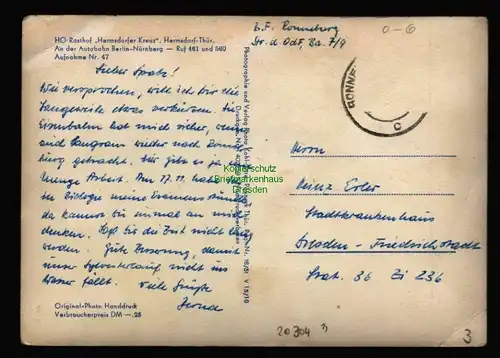 HO-Rasthof "Hermsdorfer Kreuz", Hermsdorf-Thür.
An der Autobahn Berlin-Nürnberg — Ruf 461 und 560
Aufnahme Nr. 47
Lieber Spatz!
Wie versprochen, will ich Dir die
Langeweile etwas verkürzen. Die
Eisenbahn hat mich sicher, wenn
auch langsam wieder nach Ronne-
burg gebracht. Hier gibt es ja eine
Menge Arbeit. Am 17. 11. habe ich
in Biologie meine Stunde
da kannst Du einmal an mich
denken. Laß Dir die Zeit nicht lang
werden. Gute Besserung, damit
unser Sylvesterlauf nicht ins
Wasser fällt. Viele Grüße
Original-Photo Handdruck
Verbraucherpreis DM —.25
Photographie und Verlag
V 15/10
Kupferschutz
Briefmarkenhaus
Dresden
B. F. Ronneburg
Str. d. OdF, Ba. 7/9
0-6
RONNE
c
Herrn
Heinz Erler
Stadtkrankenhaus
Dresden - Friedrichstadt
Stat. 36 Zi 236
20304
3